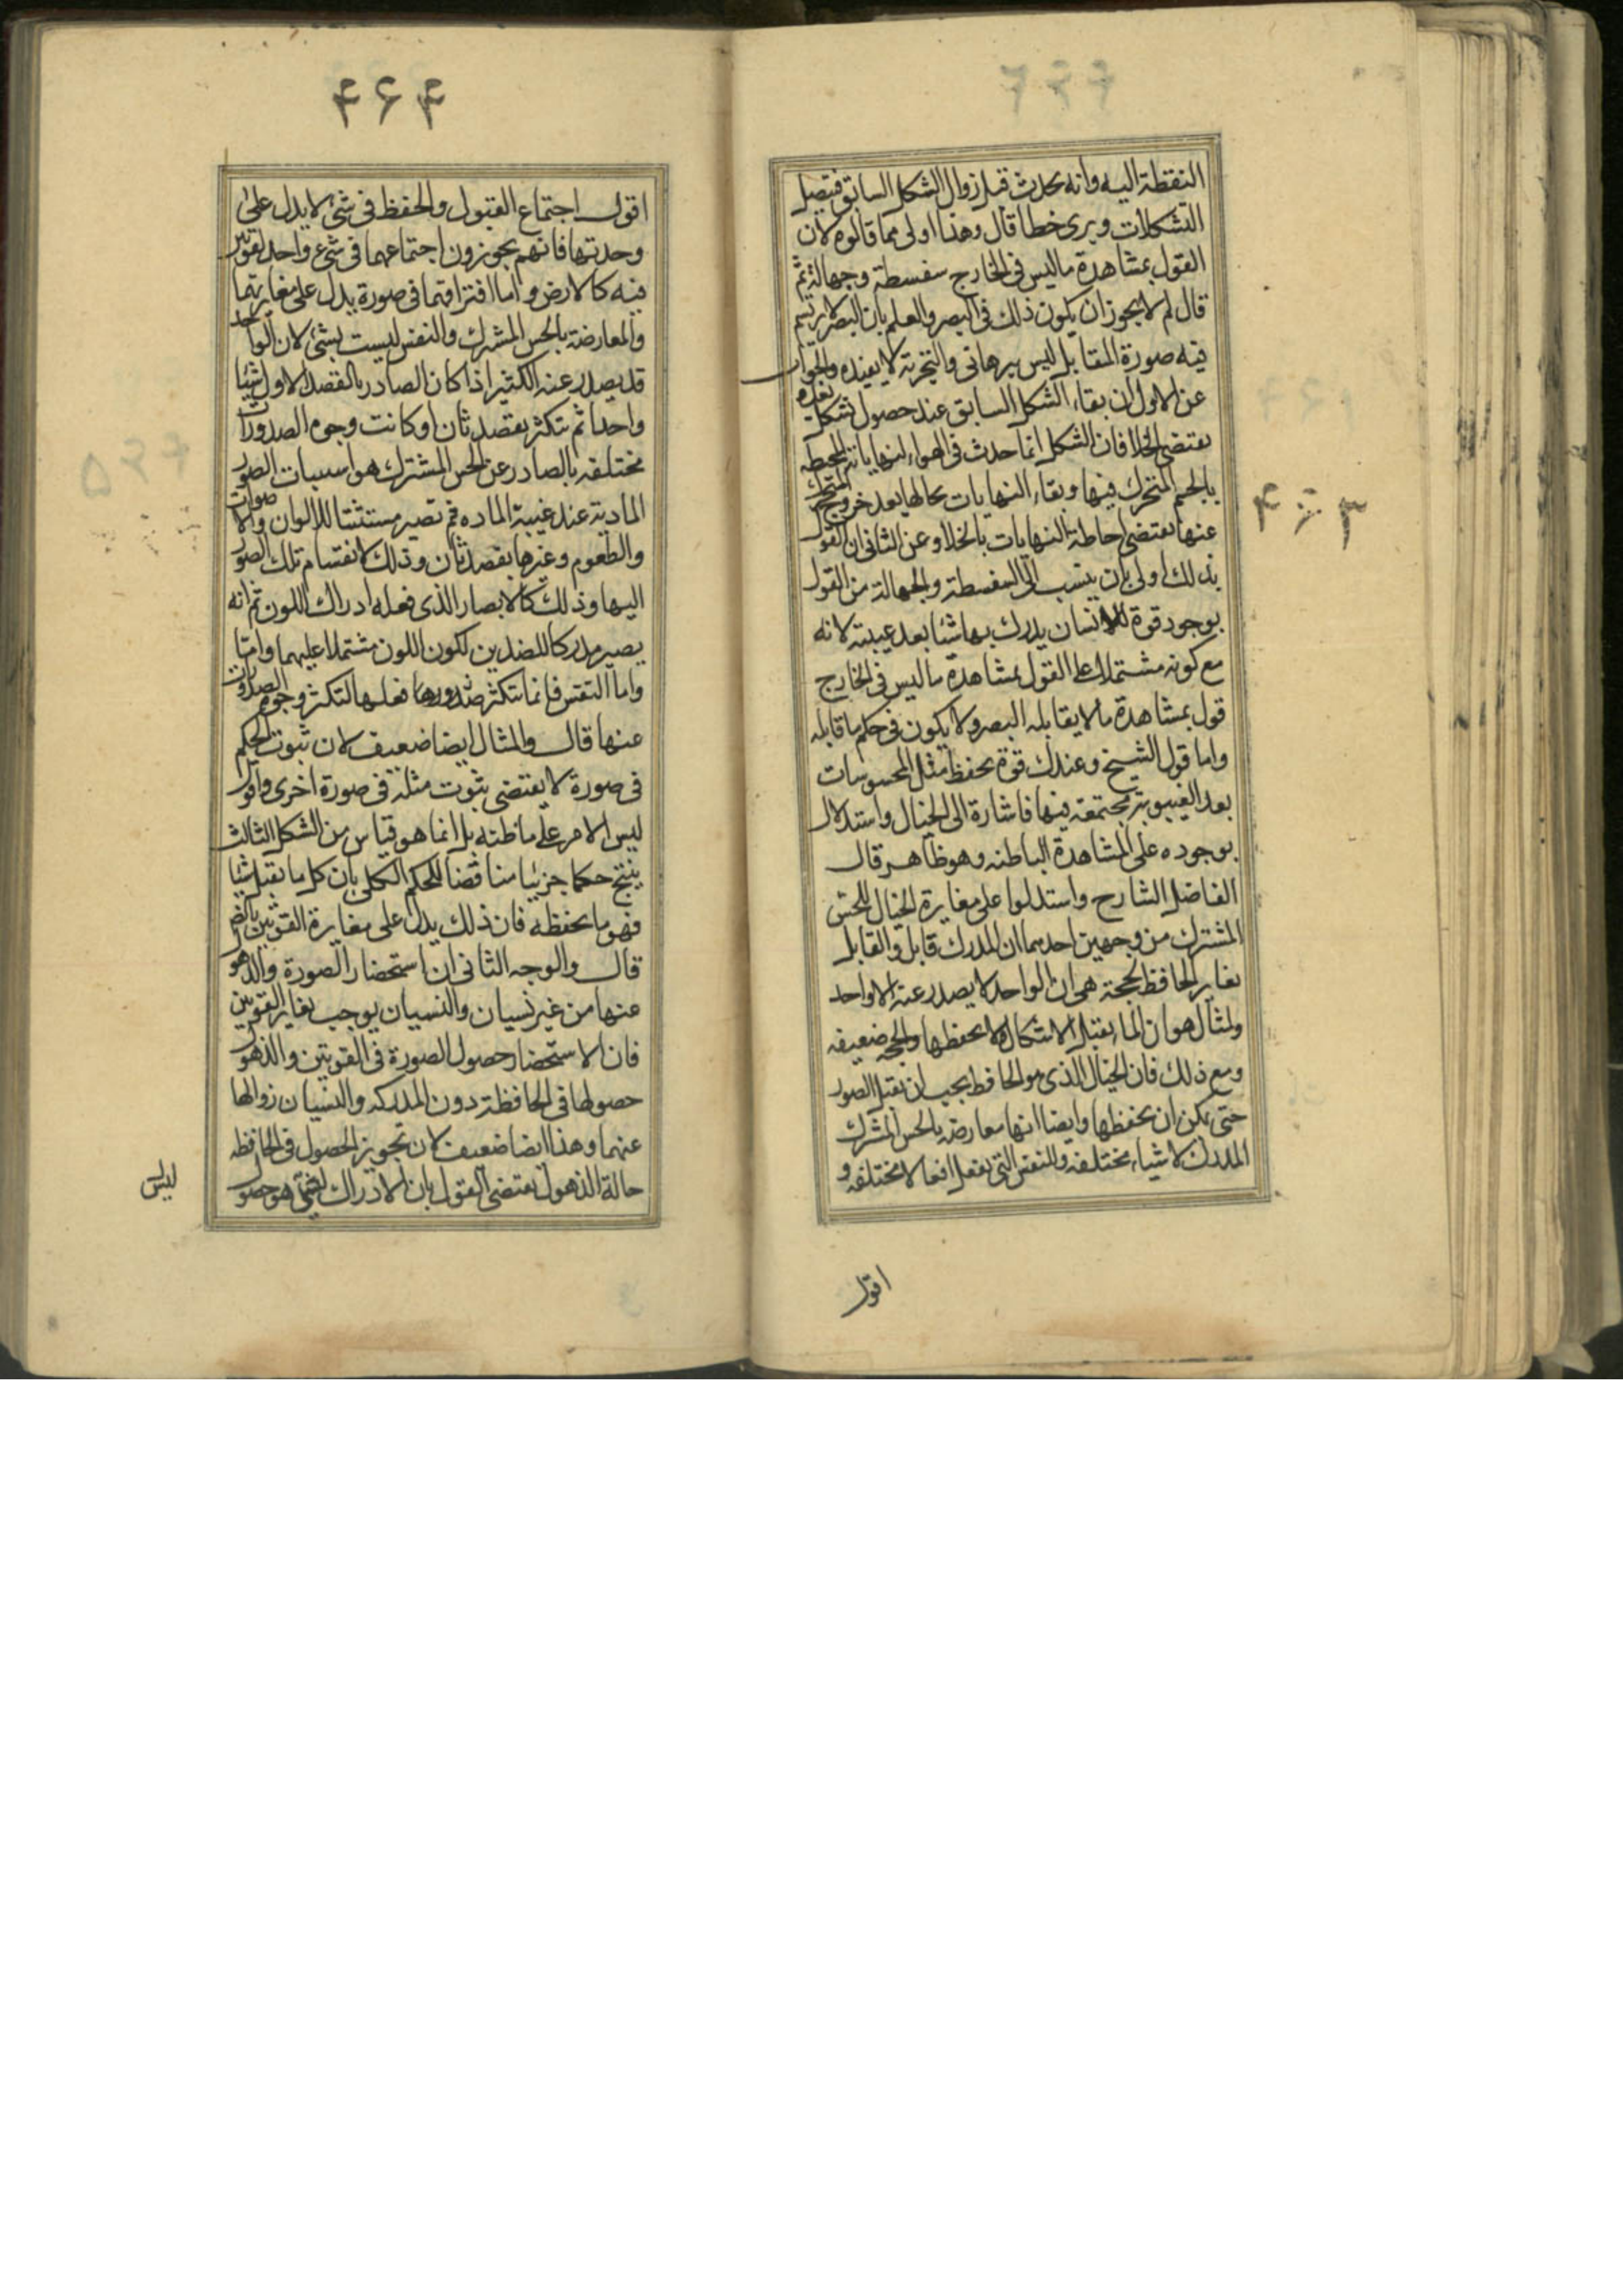 النقطة اليه وانه يحدث قبل زوال الشكل السابق فيتصل
التشكلات ويرى خطا قال وهذا اولى مما قالوه لان
القول بمشاهدة ما ليس فى الخارج سفسطة وجهالة ثم
قال لم لا يجوز ان يكون ذلك فى البصر والعلم بان البصر لا يرتسم
فيه صورة المقابل ليس ببرهانى والتجربة لا يفيده والجواب
عن الاول ان بقاء الشكل السابق عند حصول شكل بعده
يقتضى الخلا فان الشكل انما حدث فى الهواء لنهاياته المحيطه
بالجسم المتحرك فيها وبقاء النهايات بحالها بعد خروج المتحرك
عنها يقتضى احاطة النهايات بالخلا وعن الثانى ان القول
بذلك اولى بان ينسب الى السفسطة والجهالة من القول
بوجود قوة للانسان يدرك بها شيئا بعد غيبته لانه
مع كونه مشتملا على القول بمشاهدة ما ليس فى الخارج
قول بمشاهدة ما لا يقابله البصر ولا يكون فى حكم ما قابله
واما قول الشيخ وعندك قوة يحفظ مثل المحسوسات
بعد الغيبوبة مجتمعة فيها فاشارة الى الخيال واستدلال
بوجوده على المشاهدة الباطنه وهو ظاهر قال
الفاضل الشارح واستدلوا على مغايرة الخيال للحس
المشترك من وجهين احدهما ان المدرك قابل والقابل
يغاير الحافظ لحجة هى ان الواحد لا يصدر عنه الا واحد
ولمثال هو ان الماء يقبل الاشكال ولا يحفظها والحجه ضعيفه
ومع ذلك فان الخيال الذى هو الحافظ يجب ان يقبل الصور
حتى يمكن ان يحفظها وايضا انها معارضه بالحس المشترك
المدرك لاشياء مختلفه وللنفس التى يفعل افعالا مختلفه و
اقول
۴۶۳
۴۶۴
اقول اجتماع القبول والحفظ فى شئ لا يدل على
وحدتها فانهم يجوزون اجتماعهما فى شئ واحد لقوتين
فيه كالارض واما افتراقهما فى صورة يدل على مغايرتهما
والمعارضة بالحس المشترك والنفس ليست بشئ لان الواحد
قد يصدر عنه الكثير اذا كان الصادر بالقصد الاول شيئا
واحدا ثم يتكثر بقصد ثان او كانت وجوه الصدورات
مختلفه بالصادر عن الحس المشترك هو استثبات الصور
المادية عند غيبة الماده ثم تصير مستثبتا للالوان والاصوات
والطعوم وغيرها بقصد ثان وذلك لانقسام تلك الصور
اليها وذلك كالابصار الذى فعله ادراك اللون ثم انه
يصير مدركا للضدين لكون اللون مشتملا عليهما وامتا
واما النفس فانما يتكثر فعلها لتكثر وجوه الصدورات
عنها قال والمثال ايضا ضعيف لان ثبوت الحكم
فى صورة لا يقتضى ثبوت مثله فى صورة اخرى واقول
ليس الامر على ما ظنه بل انما هو قياس من الشكل الثالث
ينتج حكما جزئيا مناقضا للحكم الكلى بان كل ما يقبل شيئا
فهو ما يحفظه فان ذلك يدل على مغايرة القوتين بالضرورة
قال والوجه الثانى ان استحضار الصورة والذهول
عنها من غير نسيان والنسيان يوجب تغاير القوتين
فان الاستحضار حصول الصورة فى القوتين والذهول
حصولها فى الحافظة دون المدركه والنسيان زوالها
عنهما وهذا ايضا ضعيف لان تجويز الحصول فى الحافظه
حالة الذهول يقتضى القول بان الادراك ليس هو حصول
ليس